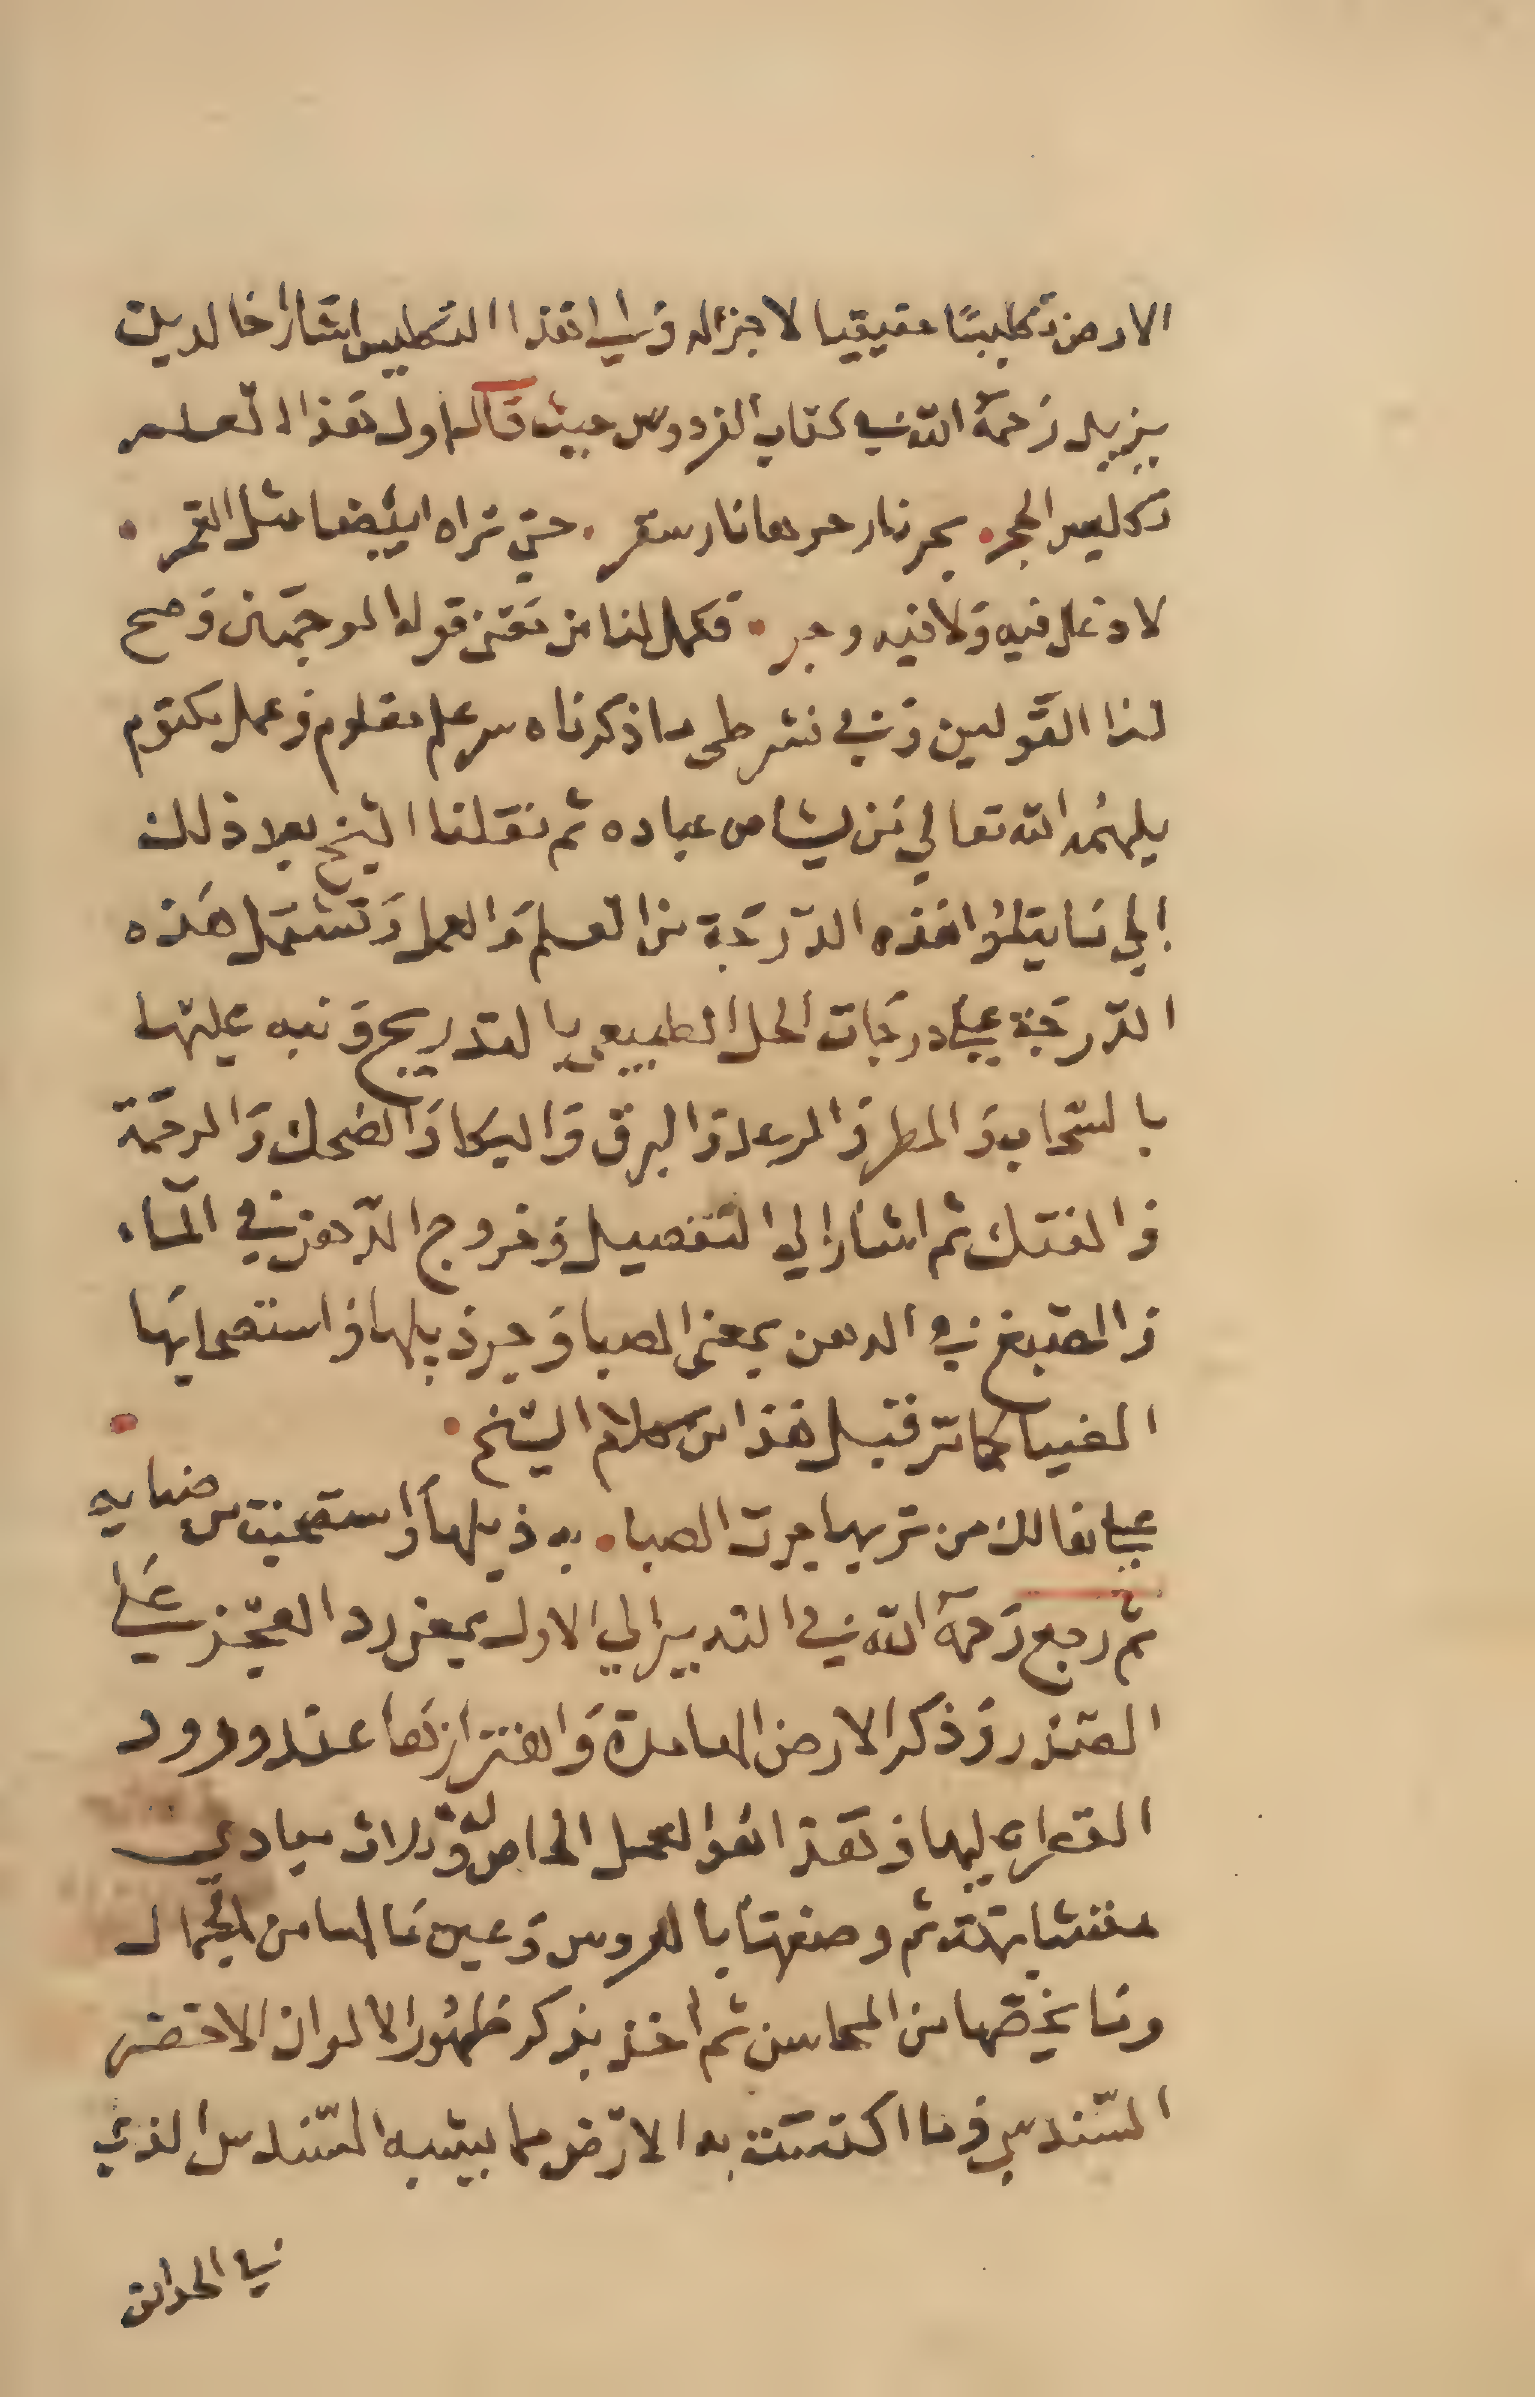 الارض تكليسًا حقيقيا لا جزاله والي هذا التكليس اشار خالد بن
يزيد رَحمة الله في كتاب الفردوس حيث قال اول هذا العلم
تكليس الحجر . بحر نار حرها نار سقر . حتي تراه ابيضا مثل القمر .
لا دغل فيه وَلا فيه وحر . فكمل لنا من معني قوله الوجهان وَصح
لنا القولين وَفي نشر طي ما ذكرناه سر علم معلوم وعمل مكتوم
يلهمُه الله تعالي من يشا من عباده ثم نقلنا الشيخ بعد ذلك
الي ما يتلوا هَذه الدرجة من العلم وَالعمل وَتشتمل هَذه
الدرجة علي درجات الحل الطبيعي بالتدريج وَنبه عليها
بالسحاب وَالمطر وَالرعد وَالبرق وَالبكا وَالضحك وَالرحمة
وَالفتك ثم اشار الي التفصيل وَخروج الدهن في المآء
وَالصبغ في الدهن بمعني الصبا وَجر ذيلها وَاستصحابها
الضيا كما تر قبل هَذا من كلام الشيخ .
علي تفا لك من تربها جرت الصبا . به ذيلها وَاستصحبت من ضيايه
ثم رجع رَحمة الله في التدبير الي الاول بمعني رد العجز علي
الصدر وَذكر الارض الهامدة وَاهتزازها عند ورود
القطر عليها وَهذا هُوا العمل الخاص وله ثلاث مبادي
متشابهة ثم وصفها بالعروس وَعين مَا لها من الجمال
ومَا يخصها من المحاسن ثم اخذ بذكر ظهُور الالوان الاخضر
السندس وما اكتست به الارض مما يشبه السندس الذي
في الحداىق